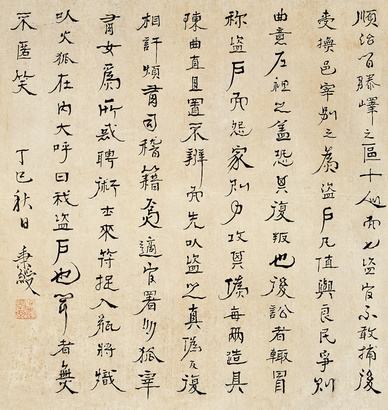 順治間滕嶧之區十人而七盜官不敢捕後
受撫邑宰別之為盜戶凡值與良民爭則
曲意左袒之蓋恐其復叛也後訟者輒冒
稱盜戶而怨家則力攻其偽每兩造具
陳曲直且置不辨而先以盜之真偽反復
相訐煩有司稽籍焉適官署多狐宰
有女為所惑聘術士來符捉入瓶將熾
以火狐在內大呼曰我盜戶也聞者無
不匿笑 丁巳秋日 秉綬